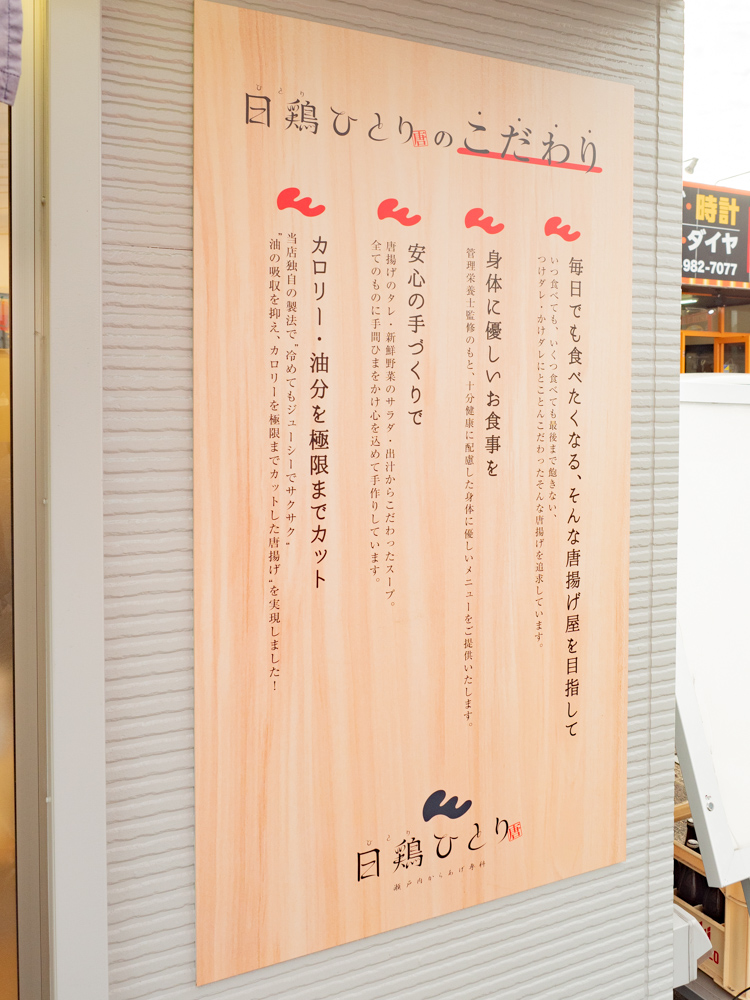 ひとり
日鶏ひとり唐のこだわり
毎日でも食べたくなる、そんな唐揚げ屋を目指して
いつ食べても、いくつ食べても最後まで飽きない、
つけダレ・かけダレにとことんこだわったそんな唐揚げを追求しています。
身体に優しいお食事を
管理栄養士監修のもと、十分健康に配慮した身体に優しいメニューをご提供いたします。
安心の手づくりで
唐揚げのタレ・新鮮野菜のサラダ・出汁からこだわったスープ。
全てのものに手間ひまをかけ心を込めて手作りしています。
カロリー・油分を極限までカット
当店独自の製法で“冷めてもジューシーでサクサク”
“油の吸収を抑え、カロリーを極限までカットした唐揚げ”を実現しました！
ひとり
日鶏ひとり唐
瀬戸内からあげ専科
・時計
・ダイヤ
982-7077